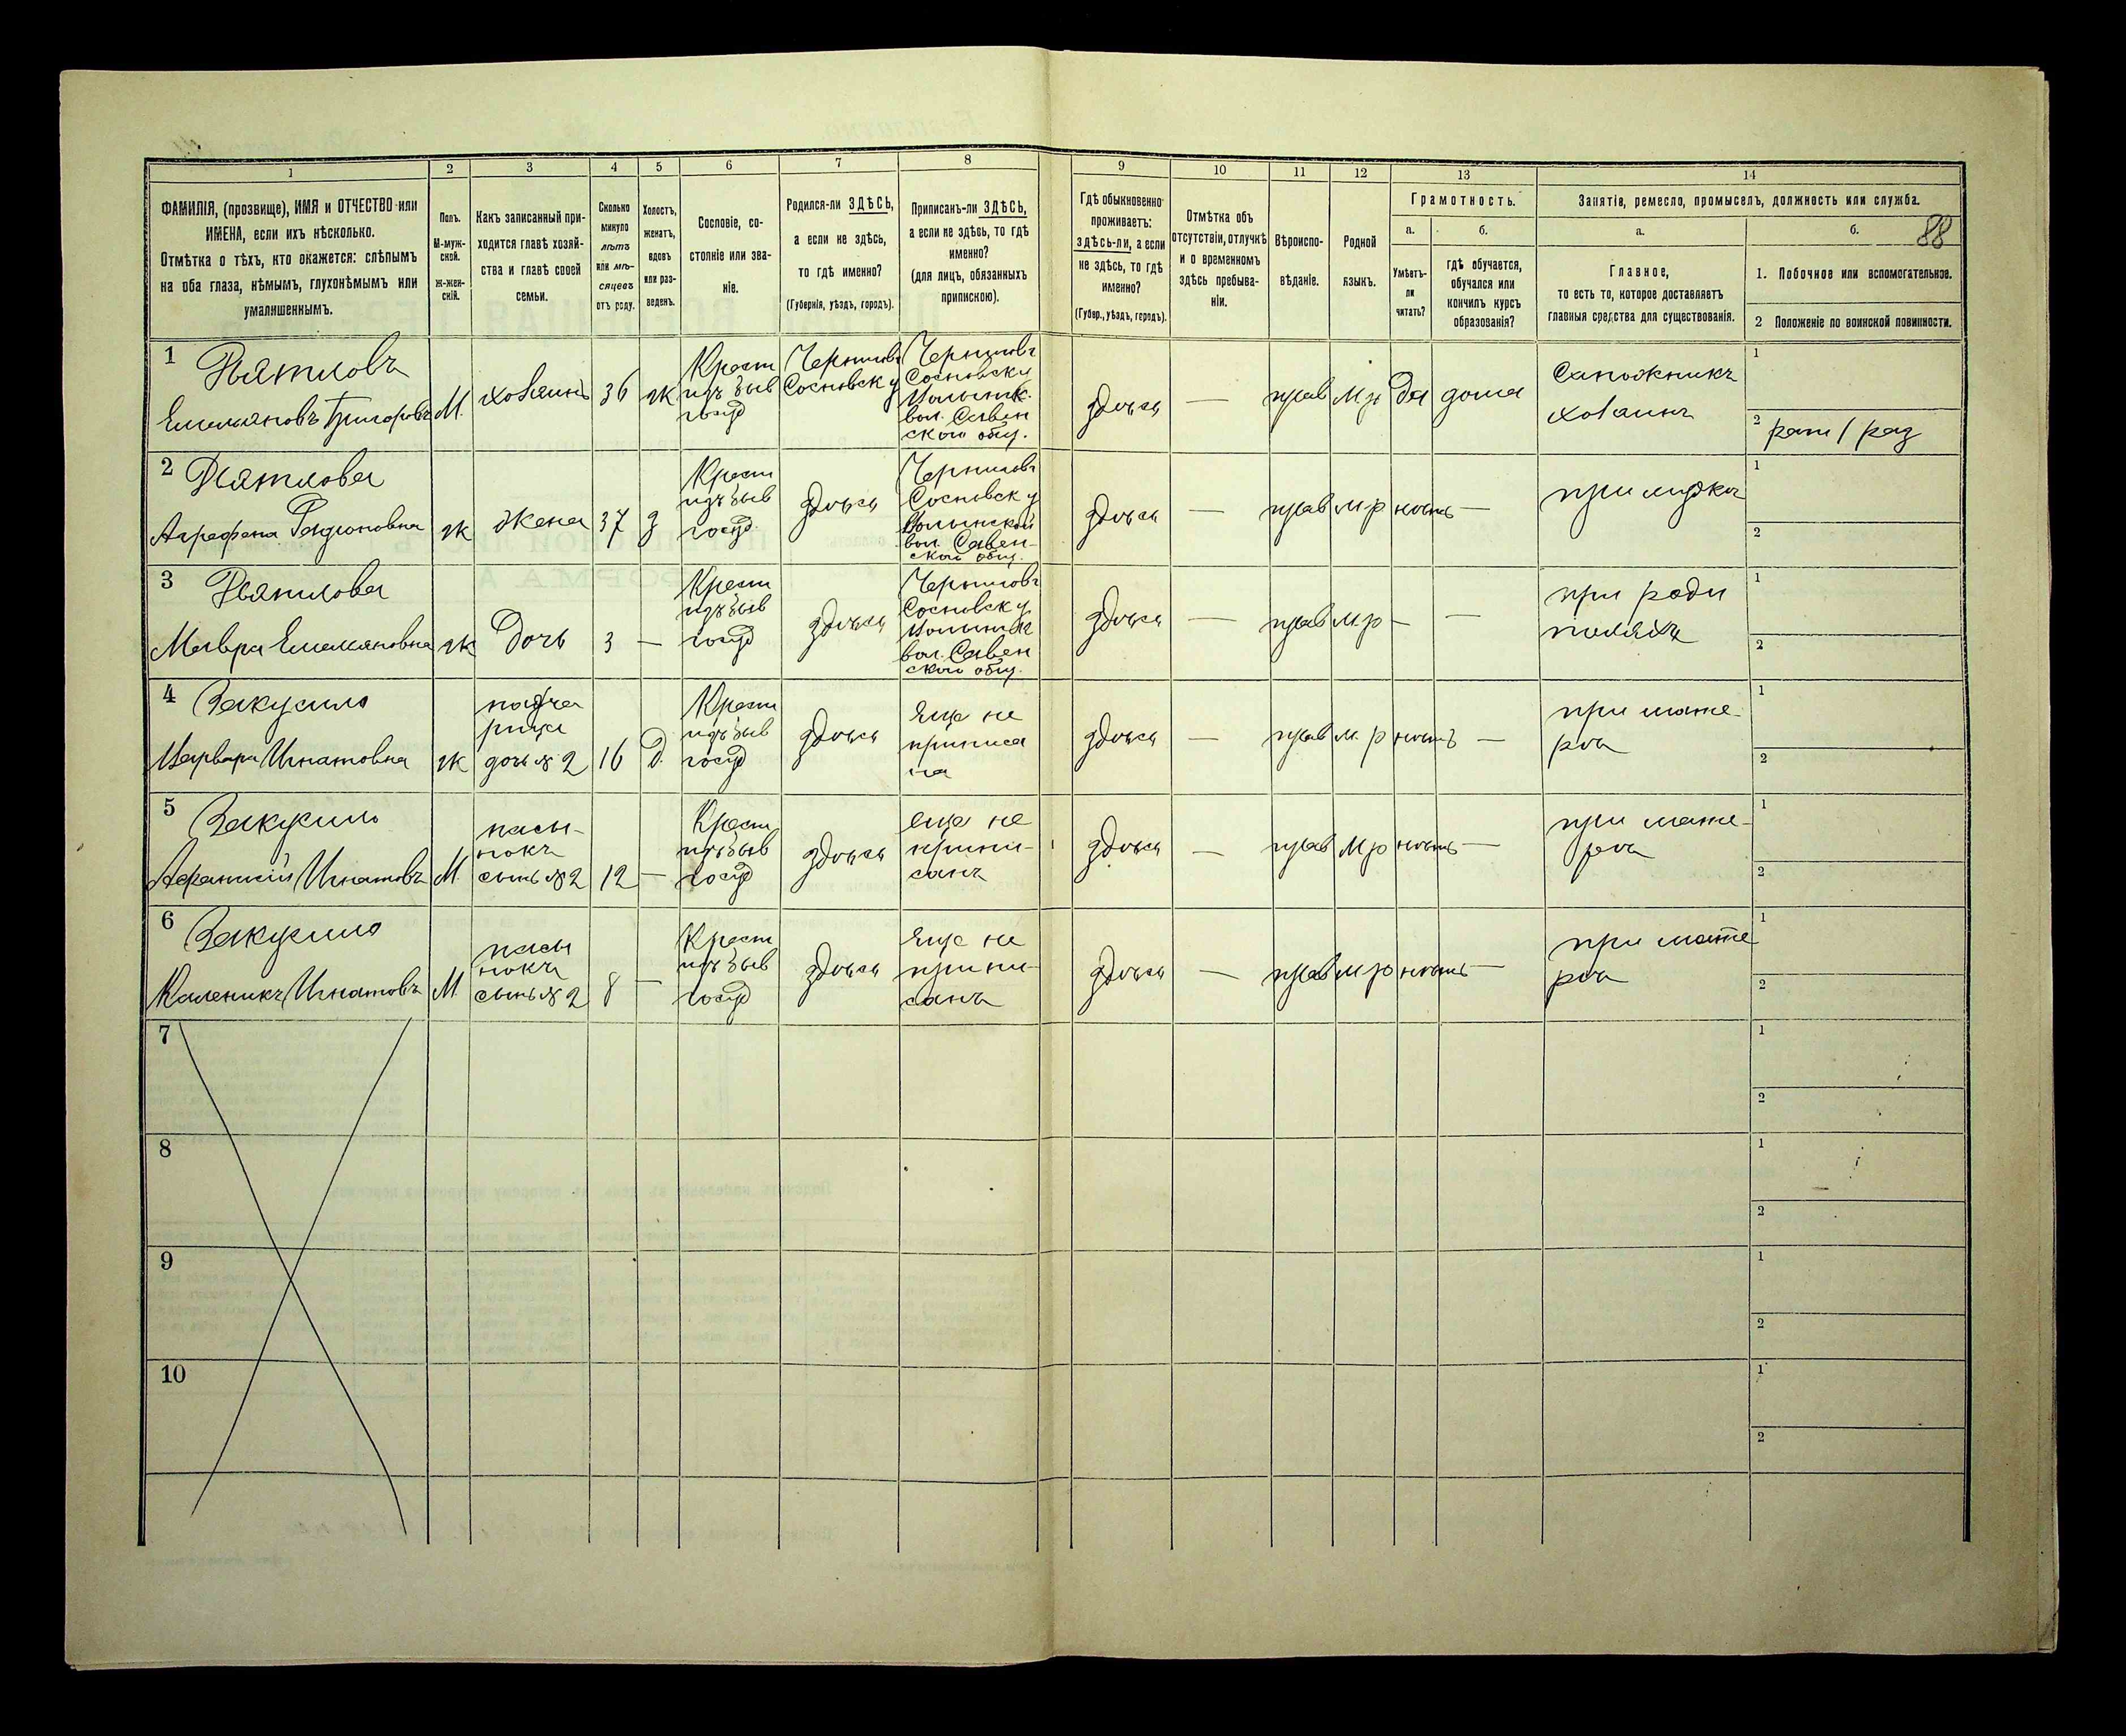 1 2 3 4 5 6 7 8 9 10 11 12 13 14
ФАМИЛІЯ, (прозвище), ИМЯ и ОТЧЕСТВО или
ИМЕНА, если ихъ нѣсколько.
Отмѣтка о тѣхъ, кто окажется: слѣпымъ
на оба глаза, нѣмымъ, глухонѣмымъ или
умалишеннымъ.
Полъ.
М-муж-
ской.
Ж-жен-
скій.
Какъ записанный при-
ходится главѣ хозяй-
ства и главѣ своей
семьи.
Сколько
минуло
лѣтъ
или мѣ-
сяцевъ
отъ роду.
Холостъ,
женатъ,
вдовъ
или раз-
веденъ.
Сословіе, со-
стояніе или зва-
ніе.
Родился-ли ЗДѢСЬ,
а если не здѣсь,
то гдѣ именно?
(Губернія, уѣздъ, городъ).
Приписанъ-ли ЗДѢСЬ,
а если не здѣсь, то гдѣ
именно?
(для лицъ, обязанныхъ
припискою).
Гдѣ обыкновенно
проживаетъ:
здѣсь-ли, а если
не здѣсь, то гдѣ
именно?
(Губер., уѣздъ, городъ).
Отмѣтка объ
отсутствіи, отлучкѣ
и о временномъ
здѣсь пребыва-
ніи.
Вѣроиспо-
вѣданіе.
Родной
языкъ.
Грамотность.
а.
Умѣетъ-
ли
читать?
б.
гдѣ обучается,
обучался или
кончилъ курсъ
образованія?
Занятіе, ремесло, промыселъ, должность или служба.
а.
Главное,
то есть то, которое доставляетъ
главныя средства для существованія.
б.
88
1. Побочное или вспомогательное.
2 Положеніе по воинской повинности.
1
Дятловъ
Емельяновъ Григоровъ
М.
хозяинъ
36
ж
Крест
изъ быв
госуд
Чернигов
Сосновск у
Чернигов
Сосновск у
Волынск.
вол. Савен
ской общ.
здѣсь
—
прав
м р
да
дома
Сапожникъ
хозяинъ
1
2 рат / раз
2
Дятлова
Агрефена Родионовна
ж
жена
37
з
Крест
изъ быв
госуд
здѣсь
Чернигов
Сосновск у
Волынской
вол. Савен-
ской общ.
здѣсь
—
прав
м р
нѣтъ
—
при мужѣ
1
2
3
Дятлова
Мавра Емельяновна
ж
Дочь
3
—
Крест
изъ быв
госуд
здѣсь
Чернигов
Сосновск у
Волынск
вол. Савен
ской общ.
здѣсь
—
прав
м р
—
—
при роди
теляхъ
1
2
4
Закусило
Варвара Игнатовна
ж
падче
рица
дочь № 2
16
Д.
Крест
изъ быв
госуд
здѣсь
Еще не
приписа
на
здѣсь
—
прав
м р
нѣтъ
—
при мате-
рѣ
1
2
5
Закусило
Игнатовъ
М.
пасы-
нокъ
сынъ № 2
12
—
Крест
изъ быв
госуд
здѣсь
еще не
припи-
санъ
здѣсь
—
прав
м р
нѣтъ
—
при мате-
рѣ
1
2
6
Закусило
Каленикъ Игнатовъ
М.
пасы
нокъ
сынъ № 2
8
—
Крест
изъ быв
госуд
здѣсь
Еще не
припи-
санъ
здѣсь
—
прав
м р
нѣтъ
—
при мате
рѣ
1
2
7
1
2
8
1
2
9
1
2
10
1
2